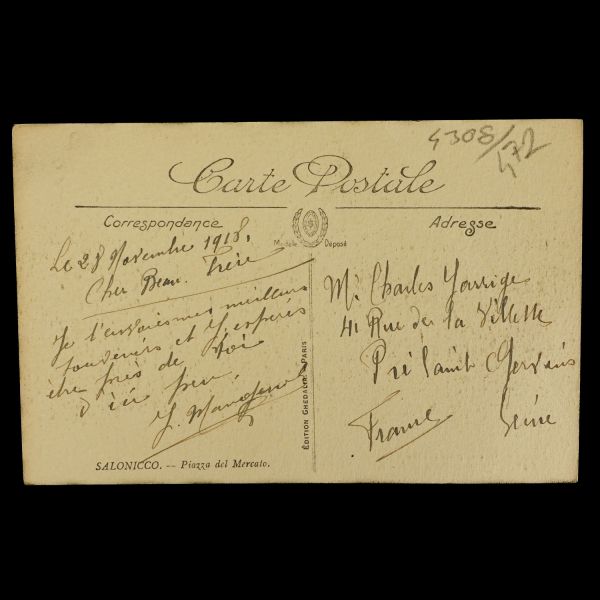 4308/472
Carte Postale
Correspondance
Adresse
Modèle Déposé
Le 28 Novembre 1918,
Cher Beau-Frère
Je t'envoie mes meilleurs
souvenirs et j'esperes
être près de toi
d'ici peu.
M. Charles
41 Rue de la Villette
Pré Saint Gervais
France Seine
EDITION GHEDALIA PARIS
SALONICCO. — Piazza del Mercato.